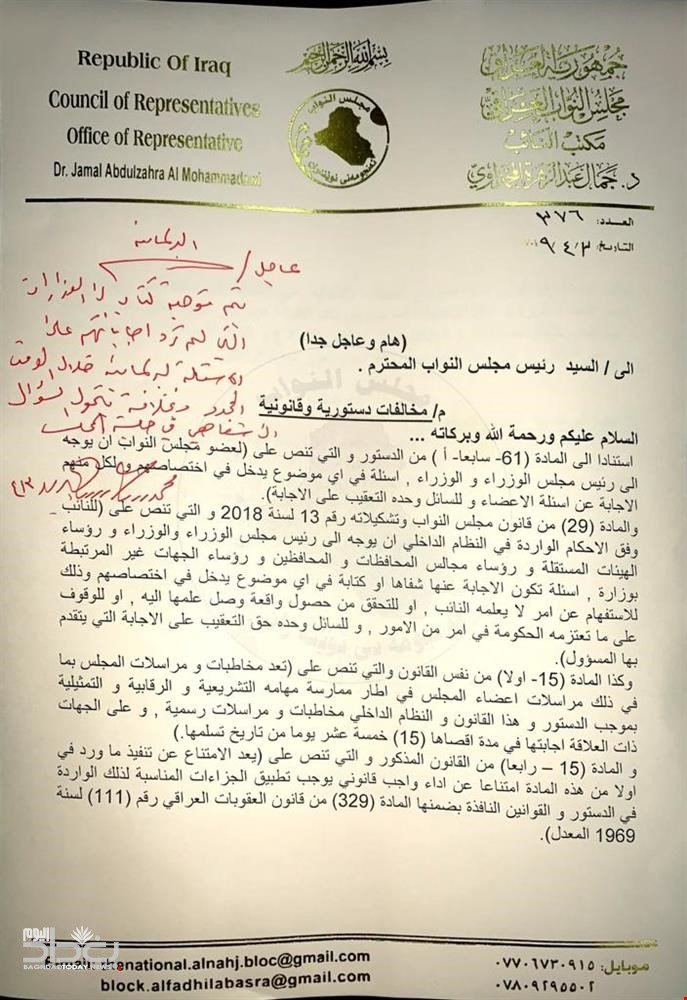 Republic Of Iraq
Council of Representatives
Office of Representative
Dr. Jamal Abdulzahra Al
بسم الله الرحمن الرحيم
مجلس النواب
جمهورية العراق
مجلس النواب العراقي
مكتب النائب
د. جمال عبد الزهرة المحمداوي
العدد: ٣٧٦
التاريخ: ٢٠١٩/٤/٣
عاجل / البرلمانية
يتم توجيه كتاب الى الوزارات
التي لم ترد اجاباتهم على
الاسئلة البرلمانية خلال الوقت
المحدد وبخلافه تتحول لسؤال
شفاهي في جلسة المجلس
(هام وعاجل جدا)
الى / السيد رئيس مجلس النواب المحترم .
م/ مخالفات دستورية وقانونية
السلام عليكم ورحمة الله وبركاته ...
استنادا الى المادة (61- سابعا- أ ) من الدستور و التي تنص على (لعضو مجلس النواب ان يوجه
الى رئيس مجلس الوزراء و الوزراء , اسئلة في اي موضوع يدخل في اختصاصهم و لكل منهم
الاجابة عن اسئلة الاعضاء و للسائل وحده التعقيب على الاجابة).
والمادة (29) من قانون مجلس النواب وتشكيلاته رقم 13 لسنة 2018 و التي تنص على (للنائب
وفق الاحكام الواردة في النظام الداخلي ان يوجه الى رئيس مجلس الوزراء والوزراء و رؤساء
الهيئات المستقلة و رؤساء مجالس المحافظات و المحافظين و رؤساء الجهات غير المرتبطة
بوزارة , اسئلة تكون الاجابة عنها شفاها او كتابة في اي موضوع يدخل في اختصاصهم وذلك
للاستفهام عن امر لا يعلمه النائب , او للتحقق من حصول واقعة وصل علمها اليه , او للوقوف
على ما تعتزمه الحكومة في امر من الامور , و للسائل وحده حق التعقيب على الاجابة التي يتقدم
بها المسؤول).
وكذا المادة (15- اولا) من نفس القانون والتي تنص على (تعد مخاطبات و مراسلات المجلس بما
في ذلك مراسلات اعضاء المجلس في اطار ممارسة مهامه التشريعية و الرقابية و التمثيلية
بموجب الدستور و هذا القانون و النظام الداخلي مخاطبات و مراسلات رسمية , و على الجهات
ذات العلاقة اجابتها في مدة اقصاها (15) خمسة عشر يوما من تاريخ تسلمها.)
و المادة (15 – رابعا) من القانون المذكور و التي تنص على (يعد الامتناع عن تنفيذ ما ورد في
اولا من هذه المادة امتناعا عن اداء واجب قانوني يوجب تطبيق الجزاءات المناسبة لذلك الواردة
في الدستور و القوانين النافذة بضمنها المادة (329) من قانون العقوبات العراقي رقم (111) لسنة
1969 المعدل).
international.alnahj.bloc@gmail.com
block.alfadhilabasra@gmail.com
موبايل: ٠٧٧٠٦٧٣٠٩١٥
٠٧٨٠٩٢٩٥٥٠٢
بغداد اليوم
BAGHDADTODAY.NEWS